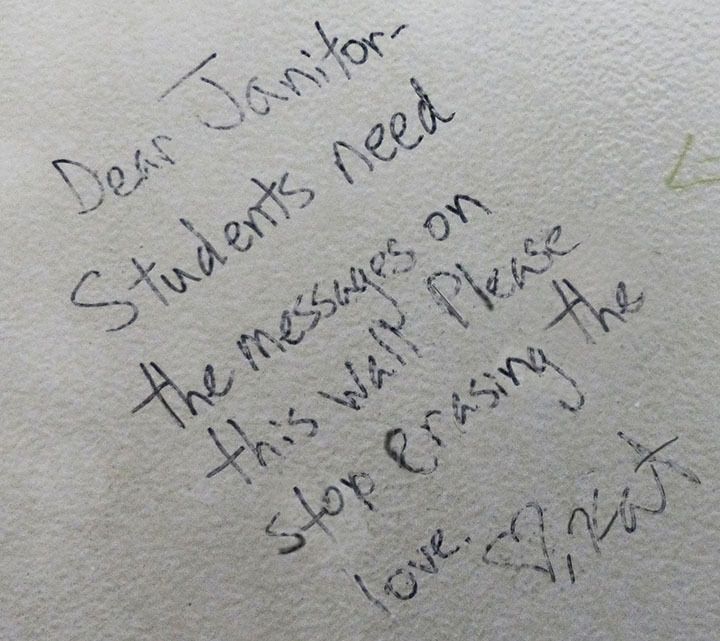 Dear Janitor-
Students need
the messages on
this wall Please
stop erasing the
love. ♡, Kat